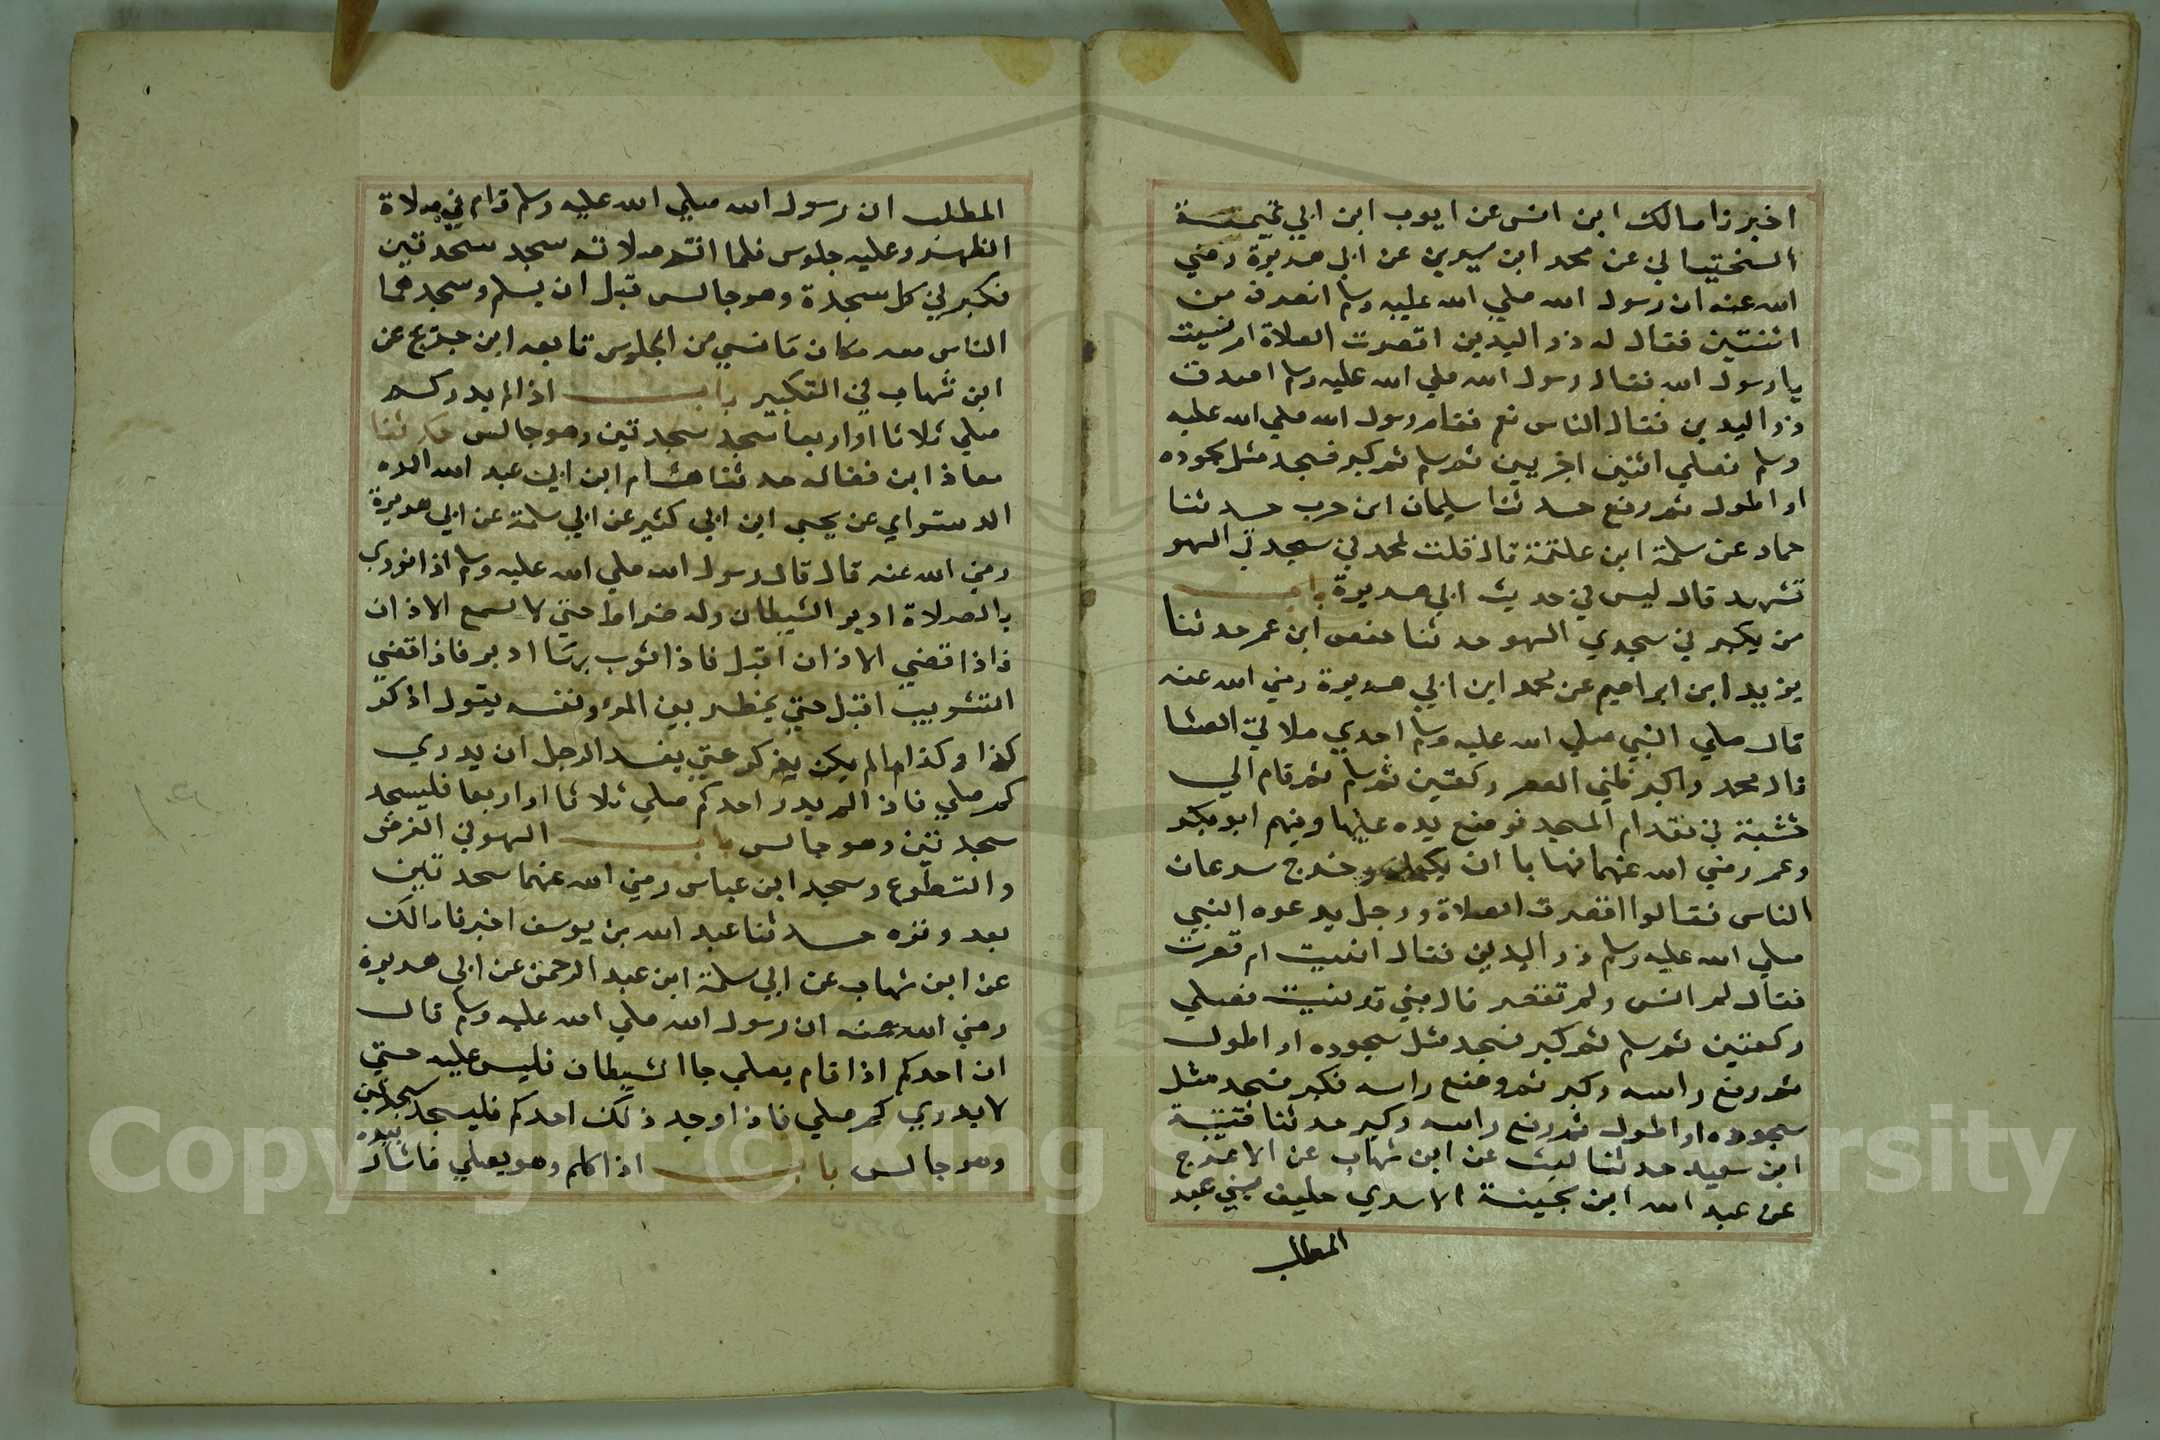 اخبرنا مالك ابن انس عن ايوب ابن ابي تميمة
السختياني عن محمد ابن سيرين عن ابي هريرة رضي
الله عنه ان رسول الله صلي الله عليه وسلم انصرف من
اثنتين فقال له ذو اليدين اقصرت الصلاة ام نسيت
يا رسول الله فقال رسول الله صلي الله عليه وسلم اصدق
ذو اليدين فقال الناس نعم فقام رسول الله صلي الله عليه
وسلم فصلي اثنتين اخريين ثم سلم ثم كبر فسجد مثل سجوده
او اطول ثم رفع حدثنا سليمان ابن حرب حدثنا
حماد عن سلمة ابن علقمة قال قلت لمحمد في سجدتي السهو
تشهد قال ليس في حديث ابي هريرة باب
من يكبر في سجدتي السهو حدثنا حفص ابن عمر حدثنا
يزيد ابن ابراهيم عن محمد ابن ابي هريرة رضي الله عنه
قال صلي النبي صلي الله عليه وسلم احدي صلاتي العشا
قال محمد واكبر ظني العصر ركعتين ثم سلم ثم قام الي
خشبة في مقدام المسجد فوضع يده عليها وفيهم ابو بكر
وعمر رضي الله عنهما فهابا ان يكلماه وخرج سرعان
الناس فقالوا اقصرت الصلاة ورجل يدعوه النبي
صلي الله عليه وسلم ذو اليدين فقال انسيت ام قصرت
فقال لم انس ولم تقصر قال بلي قد نسيت فصلي
ركعتين ثم سلم ثم كبر فسجد مثل سجوده او اطول
ثم رفع راسه وكبر ثم وضع راسه فكبر فسجد مثل
سجوده او اطول ثم رفع راسه وكبر حدثنا قتيبة
ابن سعيد حدثنا ليث عن ابن شهاب عن الاعرج
عن عبد الله ابن بحينة الاسدي حليف بني عبد
المطلب
المطلب ان رسول الله صلي الله عليه وسلم قام في صلاة
الظهر وعليه جلوس فلما اتم صلاته سجد سجدتين
فكبر في كل سجدة وهو جالس قبل ان يسلم وسجدهما
الناس معه مكان ما نسي من الجلوس تابعه ابن جريج عن
ابن شهاب في التكبير باب اذا لم يدر كم
صلي ثلاثا او اربعا سجد سجدتين وهو جالس حدثنا
معاذ ابن فضاله حدثنا هشام ابن ابي عبد الله
الدستواي عن يحيي ابن ابي كثير عن ابي سلمة عن ابي هريرة
رضي الله عنه قال قال رسول الله صلي الله عليه وسلم اذا نودي
بالصلاة ادبر الشيطان وله ضراط حتي لا يسمع الاذان
فاذا قضي الاذان اقبل فاذا ثوب بها ادبر فاذا قضي
التثويب اقبل حتي يخطر بين المرء ونفسه يقول اذكر
كذا وكذا ما لم يكن يذكر حتي يضل الرجل ان يدري
كم صلي فاذا لم يدر احدكم صلي ثلاثا او اربعا فليسجد
سجدتين وهو جالس باب السهو في الفرض
والتطوع وسجد ابن عباس رضي الله عنهما سجدتين
بعد وتره حدثنا عبد الله بن يوسف اخبرنا مالك
عن ابن شهاب عن ابي سلمة ابن عبد الرحمن عن ابي هريرة
رضي الله عنه ان رسول الله صلي الله عليه وسلم قال
ان احدكم اذا قام يصلي جا الشيطان فلبس عليه حتي
لا يدري كم صلي فاذا وجد ذلك احدكم فليسجد سجدتين
وهو جالس باب اذا كلم وهو يصلي فاشار بيده
Copyright © King Saud University